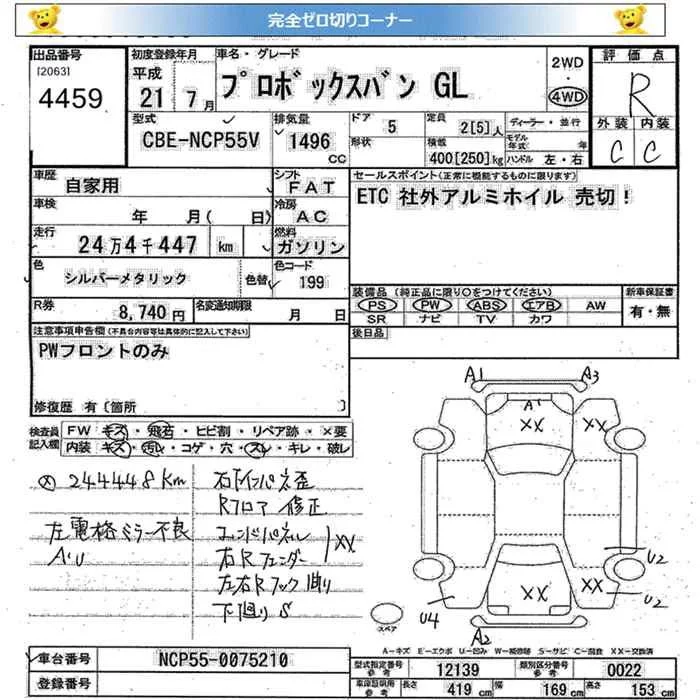 完全ゼロ切りコーナー
出品番号
[2063]
4459
初度登録年月
平成
21 7月
車名・グレード
プロボックスバン GL
2WD
・
4WD
評価点
R
外装 内装
C C
型式
CBE-NCP55V
排気量
1496
CC
ドア
5
形状
定員
2[5]人
積載
400[250]kg
ディーラー・並行
モデル年式 年
ハンドル 左・右
車歴
自家用
シフト
FAT
車検
年 月( 日)
冷房
AC
走行
24万4千447 km
燃料
ガソリン
色
シルバーメタリック
色替
色コード
199
R券
8,740円
名変通知期限
月 日
セールスポイント(正常に機能するものに限ります)
ETC 社外アルミホイル 売切!
装備品 (純正品に限り○をつけてください)
PS PW ABS エアB AW
SR ナビ TV カワ
新車保証書
有・無
後日品
注意事項申告欄(不具合内容等は具体的に記入して下さい)
PWフロントのみ
修復歴 有〔箇所 〕
検査員記入欄
FW キズ・飛石・ヒビ割・リペア跡・×要
内装 キズ・汚れ・コゲ・穴・スレ・キレ・破レ
244448km
左電格ミラー不良
Rフロア 修正
右Rフェンダー
XX
下廻り S
A1 A3
A1
XX XX
XX XX
U2
U2
U4
A2
スペア
A-キズ E-エクボ U-凹み W-補修跡 S-サビ C-腐食 XX-交換済
車台番号
NCP55-0075210
登録番号
型式指定番号
参考
12139
類別区分番号
参考
0022
車庫証明用
参考
長さ 419 cm
幅 169 cm
高さ 153 cm